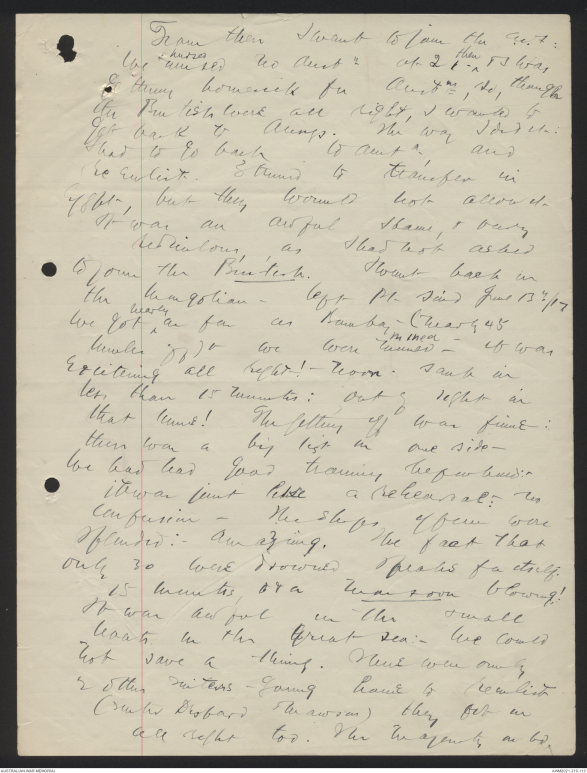 From then I went to join the A.I.F:
We nursed no Austns at 21 then & I was
getting homesick for Austns, so, though
the British were all right, I wanted to
get back to Aussys. The way I did it:
I had to go back to Austa, and
re enlist. I tried to transfer in
Egypt, but they would not allow it.
It was an awful shame, & very
rediculous, as I had not asked
to join the British. I went back in
the Mongolian - left Pt. Said June 13th/17
We got nearly as far as Bombay - (nearly 45
miles off) & we were mined - it was
exciteing all right! - noon. Sank in
less than 15 minutes: out of sight in
that time! The getting off was fine:
there was a big list on one side -
We had had good training beforehand: -
it was just like a rehearsal: no
confusion - The ships officers were
splendid: - amazing. The fact that
only 30 were drowned speaks for itself.
15 minutes, & a monsoon blowing!
It was awful in the small
boats in the great sea: - we could
not save a thing. There were only
2 other sisters - going home to reenlist
they got in
all right too. The majority on bd.